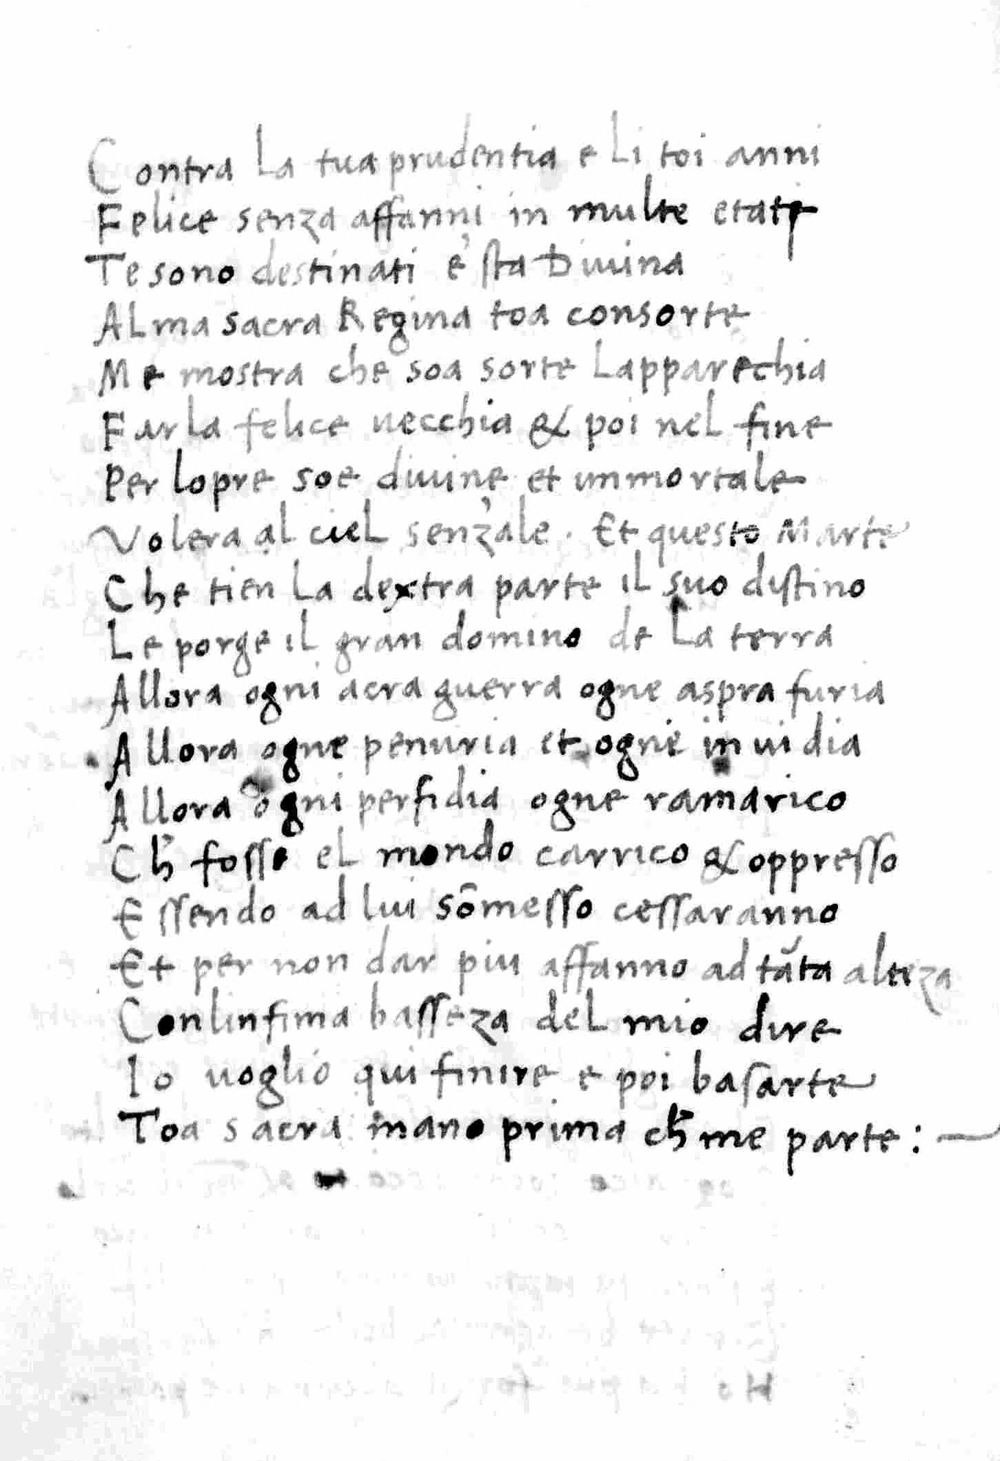 Contra la tua prudentia e li toi anni
Felice senza affanni in multe etati
Te sono destinati e sta Diuina
Alma sacra Regina toa consorte
Me mostra che soa sorte lapparechia
Farla felice uecchia & poi nel fine
Per lopre soe diuine et immortale
Volera al ciel senz'ale. Et questo Marte
Che tien la dextra parte il suo distino
Le porge il gran domino de la terra
Allora ogni acra guerra ogne aspra furia
Allora ogne penuria et ogne inuidia
Allora ogni perfidia ogne ramarico
Ch̄ fosse el mondo carrico & oppresso
Essendo ad lui sōmesso cessaranno
Et per non dar piu affanno ad tāta alteza
Conlinfima basseza del mio dire
Io uoglio qui finire e poi basarte
Toa sacra mano prima ch̄ me parte: